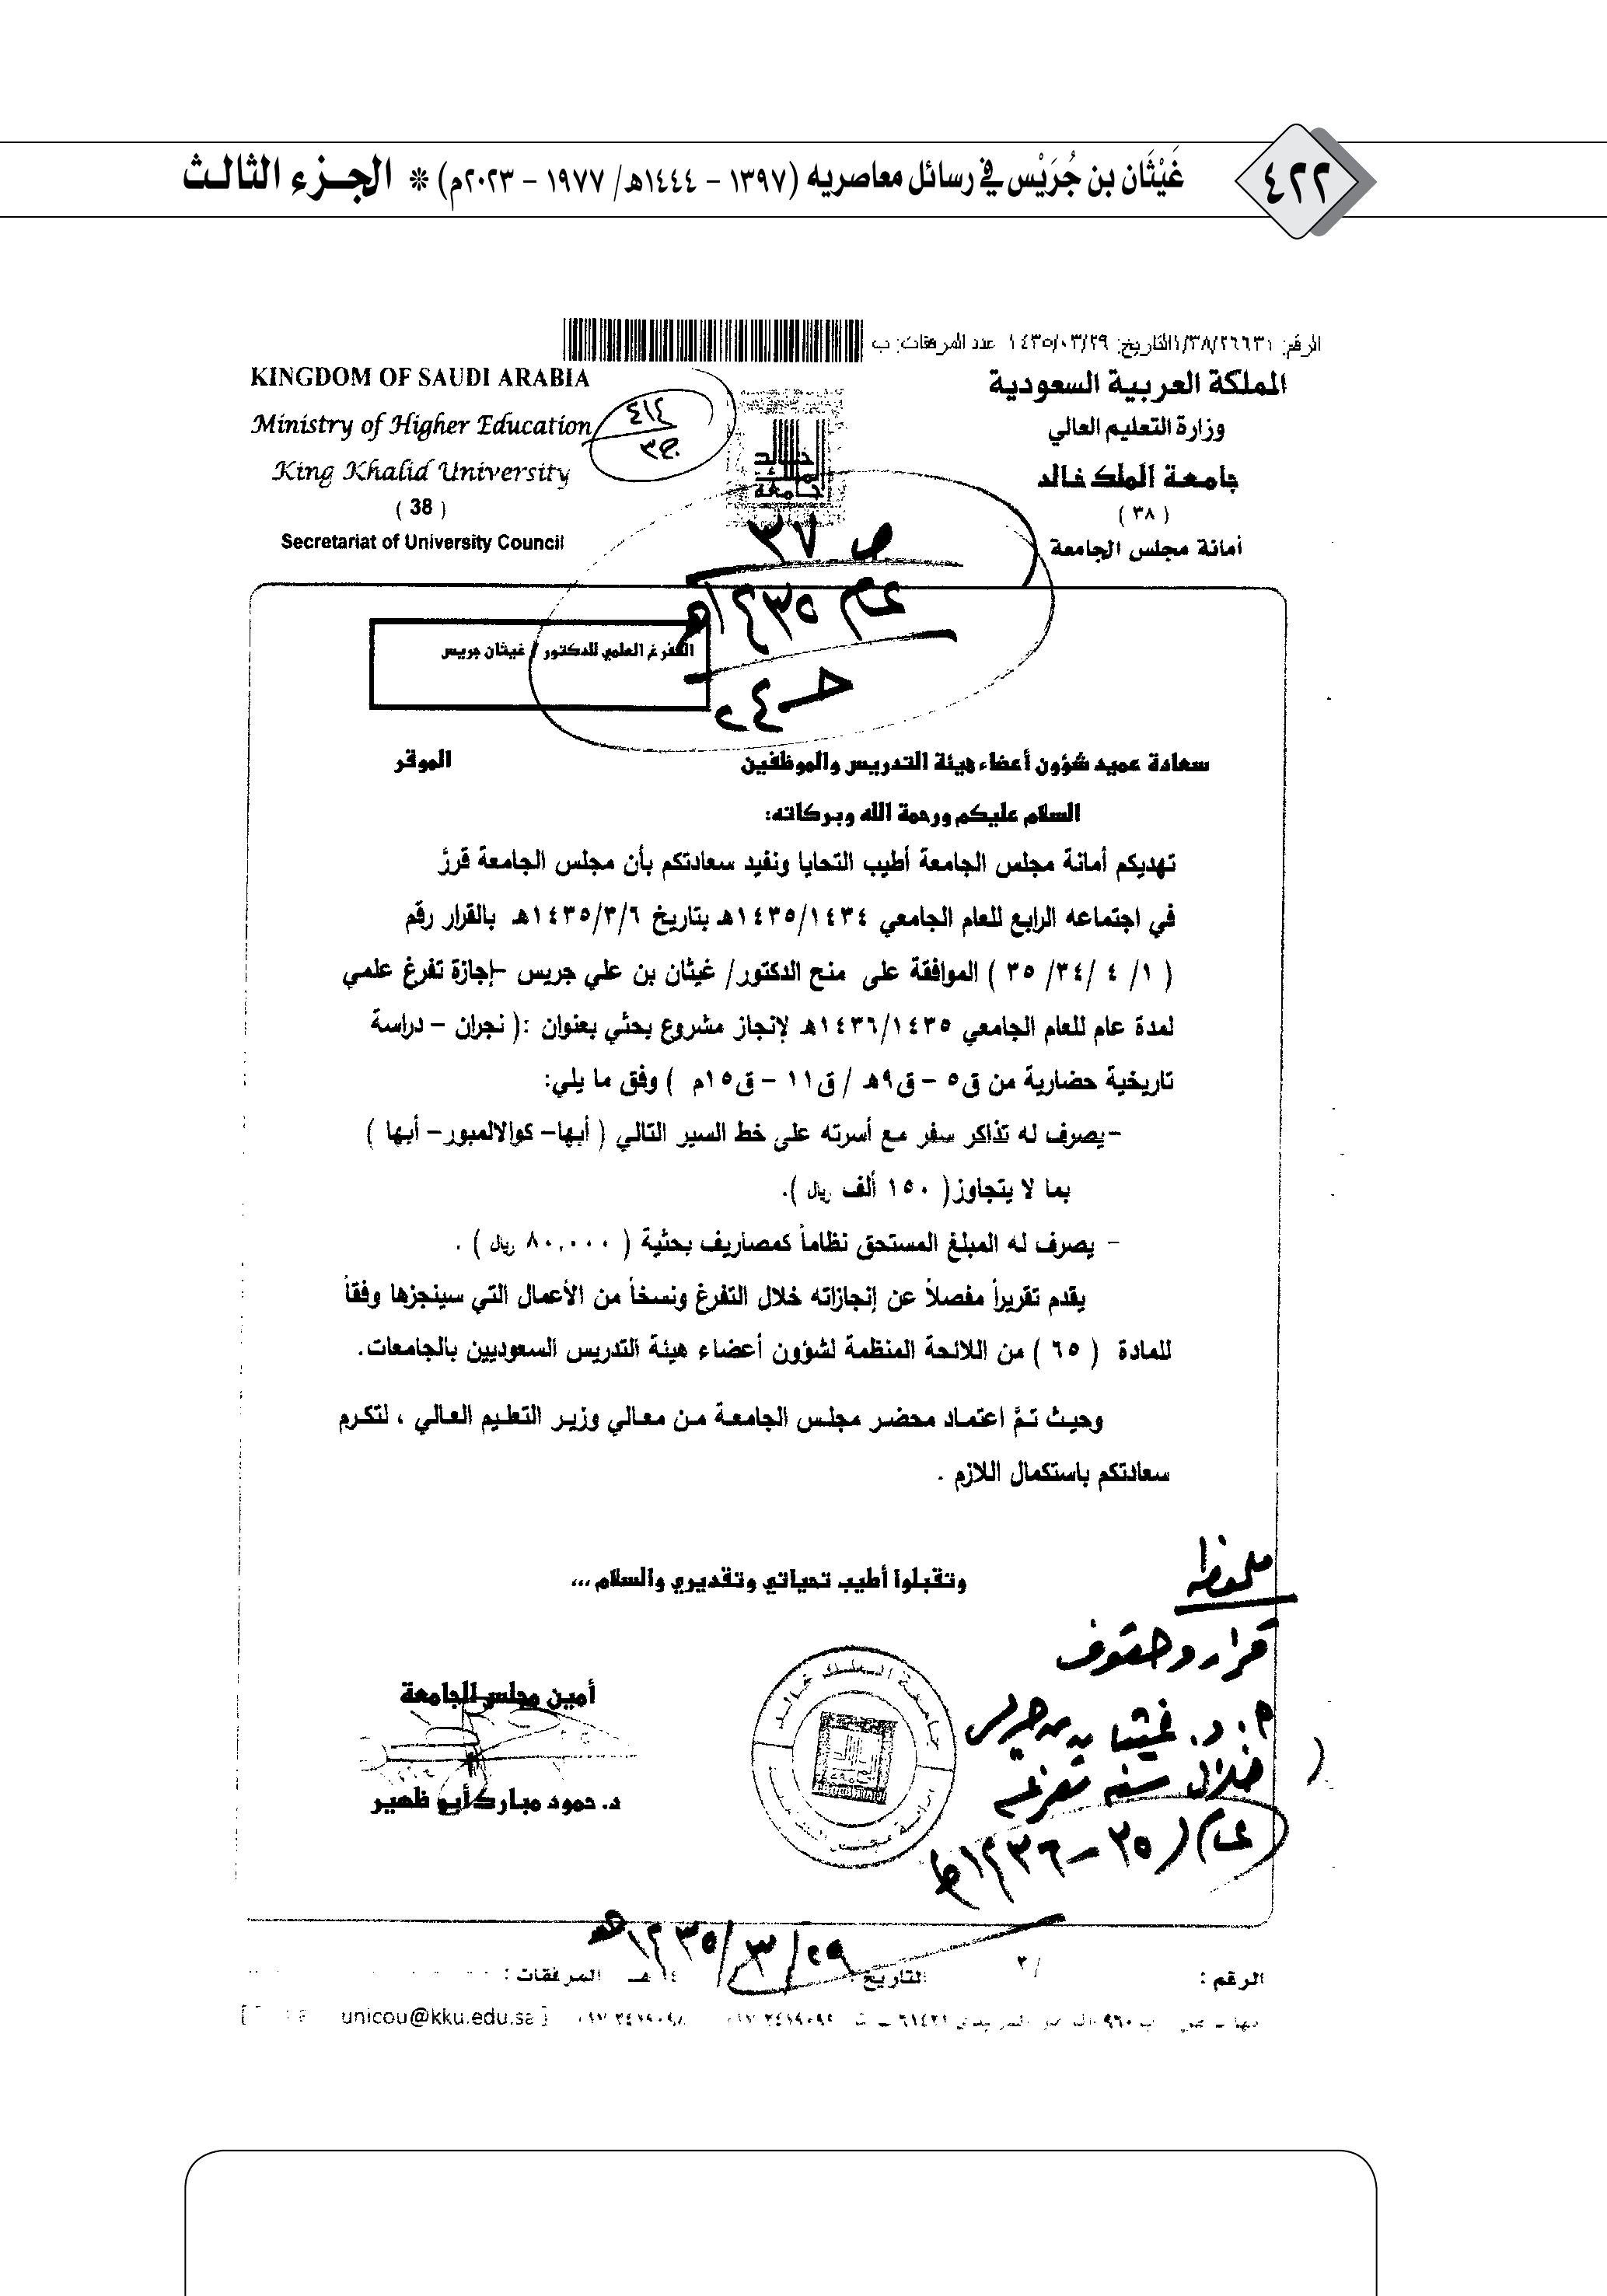 ٤٢٢
غَيْثَان بن جُرَيْس في رسائل معاصريه (١٣٩٧ – ١٤٤٤هـ/ ١٩٧٧ – ٢٠٢٣م) * الجــزء الثالـث
الرقم: ١/٣٨/٢٦٦٣١التاريخ: ١٤٣٥/٠٣/٢٩ عدد المرفقات: ب
المملكة العربية السعودية
وزارة التعليم العالي
جامعة الملك خالد
( ٣٨ )
أمانة مجلس الجامعة
KINGDOM OF SAUDI ARABIA
Ministry of Higher Education
King Khalid University
( 38 )
Secretariat of University Council
٤١٤
جـ٣
خالد
الملك
جامعة
ص ٣٧
عام ١٤٣٥هـ
التفرغ العلمي للدكتور / غيثان جريس
سعادة عميد شؤون أعضاء هيئة التدريس والموظفين الموقر
السلام عليكم ورحمة الله وبركاته:
تهديكم أمانة مجلس الجامعة أطيب التحايا ونفيد سعادتكم بأن مجلس الجامعة قررَّ
في اجتماعه الرابع للعام الجامعي ١٤٣٥/١٤٣٤هـ بتاريخ ١٤٣٥/٣/٦هـ بالقرار رقم
( ١/ ٤ /٣٤/ ٣٥ ) الموافقة على منح الدكتور/ غيثان بن علي جريس -إجازة تفرغ علمي
لمدة عام للعام الجامعي ١٤٣٦/١٤٣٥هـ لإنجاز مشروع بحثي بعنوان :( نجران – دراسة
تاريخية حضارية من ق٥ – ق٩هـ / ق١١ – ق١٥م ) وفق ما يلي:
-يصرف له تذاكر سفر مع أسرته على خط السير التالي ( أبها- كوالالمبور- أبها )
بما لا يتجاوز( ١٥٠ ألف ريال ).
- يصرف له المبلغ المستحق نظاماً كمصاريف بحثية ( ٨٠,٠٠٠ ريال ) .
يقدم تقريراً مفصلاً عن إنجازاته خلال التفرغ ونسخاً من الأعمال التي سينجزها وفقاً
للمادة ( ٦٥ ) من اللائحة المنظمة لشؤون أعضاء هيئة التدريس السعوديين بالجامعات.
وحيث تمَّ اعتماد محضر مجلس الجامعة من معالي وزير التعليم العالي ، لتكرم
سعادتكم باستكمال اللازم .
وتقبلوا أطيب تحياتي وتقديري والسلام...
ملحوظة
قرار وحقوق
أ. د. غيثان بن جريس
خلال سنة تفرغه
عام (٣٥ – ١٤٣٦هـ)
أمين مجلس الجامعة
د. حمود مبارك أبو ظهير
١٤٣٥/٣/٢٩هـ
الرقم : التاريخ : المرفقات :
unicou@kku.edu.sa